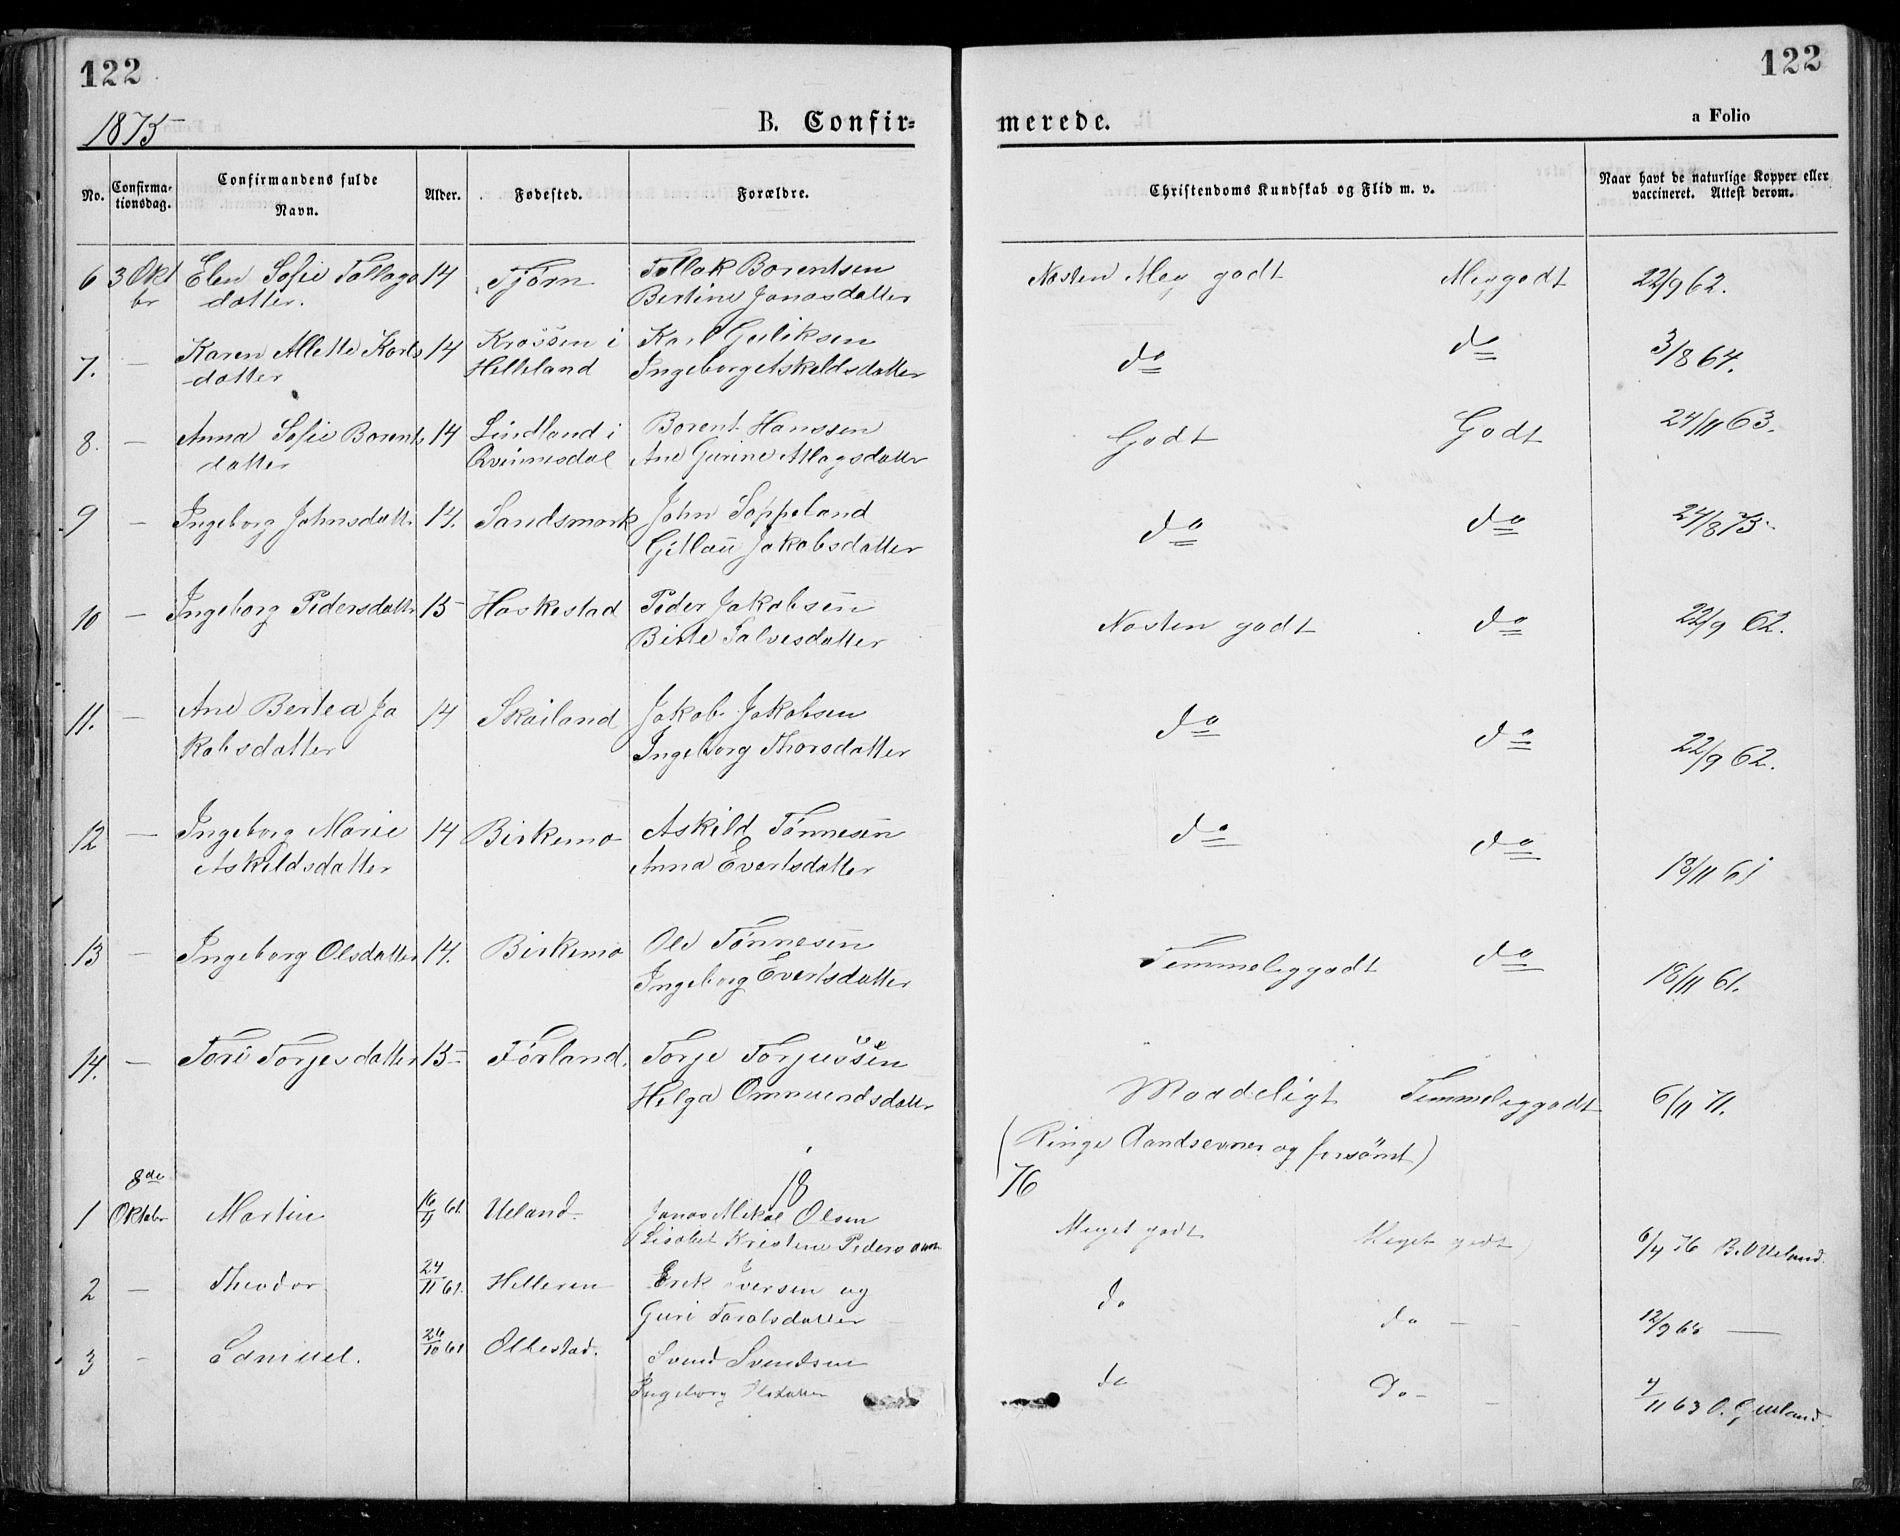 122
122
1875
B. Confir=
merede.
a Folio
No.
Confirma-
tionsdag.
Confirmandens fulde
Navn.
Alder.
Fødested.
Forældre.
Christendoms Kundskab og Flid m. v.
Naar havt de naturlige Kopper eller
vaccineret. Attest derom.
6 3 Okt Elen Sofie Tollags 14 Tjörn Tollak Borentsen Næsten Meg godt Meg godt 22/9 62.
br datter. Bertine Jonasdatter
7. — Karen Alette Karls 14 Krossen i Karl Guliksen do do 3/8 64.
datter Helleland Ingeborg Askeldsdatter
8. — Anna Sofie Borents 14 Lindland i Borent Hanssen Godt Godt 24/11 63.
datter Qvinnesdal Ane Gurine Atlagsdatter
9 — Ingeborg Johnsdatter 14. Sandsmark John Soppeland do do 24/8 75
Gitlau Jakobsdatter
10 — Ingeborg Pedersdatter 15 Haskestad Peder Jakobsen Næsten godt do 22/9 62.
Birte Salvesdatter
11. — Ane Bertea Ja 14 Skailand Jakob Jakobsen do do 22/9 62.
kobsdatter Ingeborg Thorsdatter
12 — Ingeborg Marie 14 Birkemo Askild Tönnesen do do 18/11 61
Askildsdatter Anna Evertsdatter
13 — Ingeborg Olsdatter 14. Birkemo Ole Tönnesen Temmeliggodt do 18/11 61.
Ingeborg Evertsdatter
14. — Tori Torjesdatter 15 Förland. Torje Torjussen Maadeligt Temmeliggodt 6/11 71.
Helga Ommundsdatter
(Ringe Aandsevner og forsömt)
18 76
8de
1 Oktober Martin 16/4 61. Ueland Jonas Mikal Olsen Meget godt Meget godt 6/4 76 B. O Ueland.
Lisabet Kristine Pedersdatter
2 — Theodor 24/11 61. Helleren Erik Iversen og do do — — 12/9 65 —
Guri Taralsdatter
3 — Samuel. 26/10 61 Ollestad. Svend Svendsen do Do —
Ingeborg Olsdatter 7/11 63 O. Gjuland.